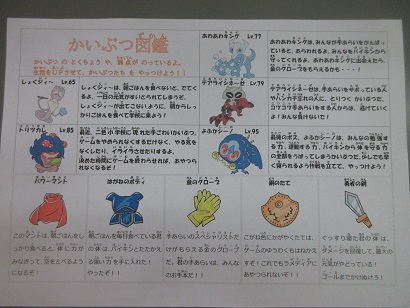 かいぶつ図鑑
かいぶつ の とくちょう や、弱点が のっているよ。
生活をレベルアップさせて、かいぶつたち を やっつけよう！！
あわあわキング Lv.77
あわあわキングは、みんなが手あらいをがんばっ
ていると、あらわれるよ。みんなをバイキンから
守ってくれるよ。あわあわキングに出会えたら、
金のグローブをもらえるかも・・・！
しょくジィ～ Lv.65
しょくジィ～は、朝ごはんを食べないと、とてく
るよ。一日の元気がすいとられてしまうよ。
しょくジィ～が出てこないように、朝からしっか
りごはんを食べて学校に来よう！
テアライシネーゼ Lv.79
テアライシネーゼは、手あらいをサボっている人
やハンカチ忘れの人に、とりつく かいぶつだ。
コウカコウカをする人からは、逃げていくよ！
みんな、気を付けてね！
トリツカレ Lv.85
最近、二色小学校に現れた手ごわいかいぶつ。
ゲームをやめられなくするだけなく、やる気をな
くしたり、イライラさせたりするよ。
決めた時間にゲームを終わらせれば、あやつ
られなくなるぞ！
よるふかシーノ Lv.95
最強のボス、よるふかシーノは、みんなの勉強す
る力、運動する力、バイキンから体を守る力
の全部をうばってしまうかいぶつだ。少しでも早
く寝られるよう作戦を立てて、やっつけよう！
パワーマント
このマントは、朝ごはんを
しっかり食べると、体に力が
みなぎって、空をとべるよう
になるぞ！
はがねのボディ
朝ごはんを毎日食べている君
の体は、バイキンとたたかえ
る強い力を手に入れた！
やったぞ！！
金のグローブ
手あらいのスペシャリストだ
けがもらえる金のグローブ
だ。君の手あらいは、みんな
のお手本だ！！
銅のたて
こがね色にかがやくたては、
ゲームのゆうわくもはねかえ
すぞ！これでもうメディアに
あやつられないぞ！！
勇者の剣
ぐっすり寝た君の体は、
ダメージを回復して、最大の
元気がやどっている！
ゴールまでかけぬけろ！